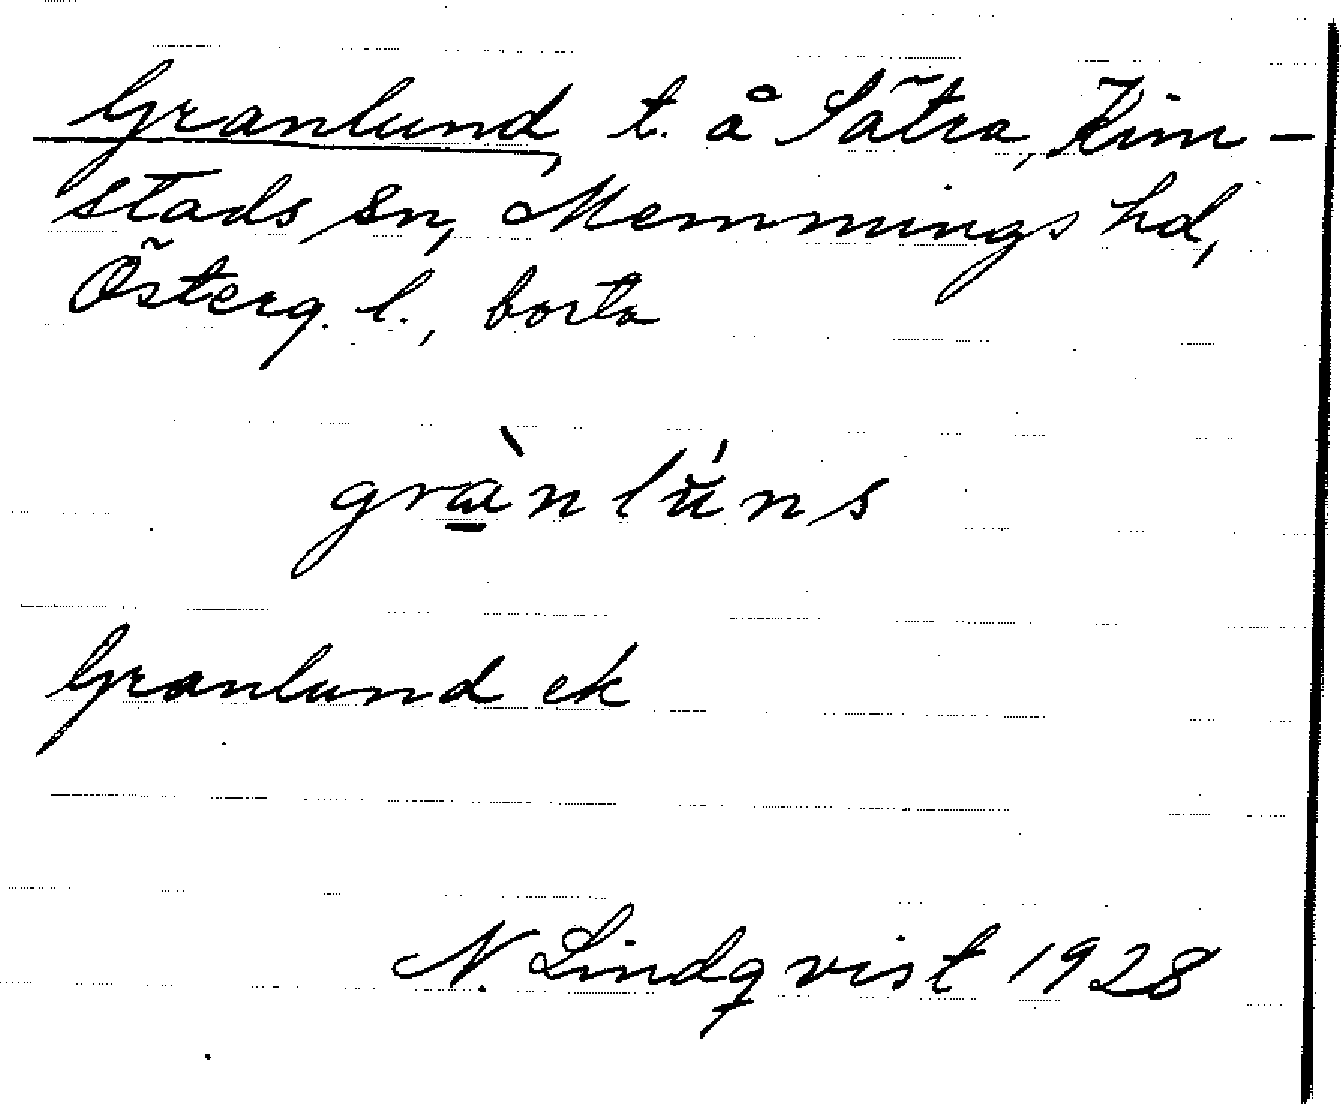 Granlund, t. å Sätra, Kim-
stads sn, Memmings hd,
Österg. l., borta
grànlú̆ns
Granlund ek
N. Lindqvist 1928